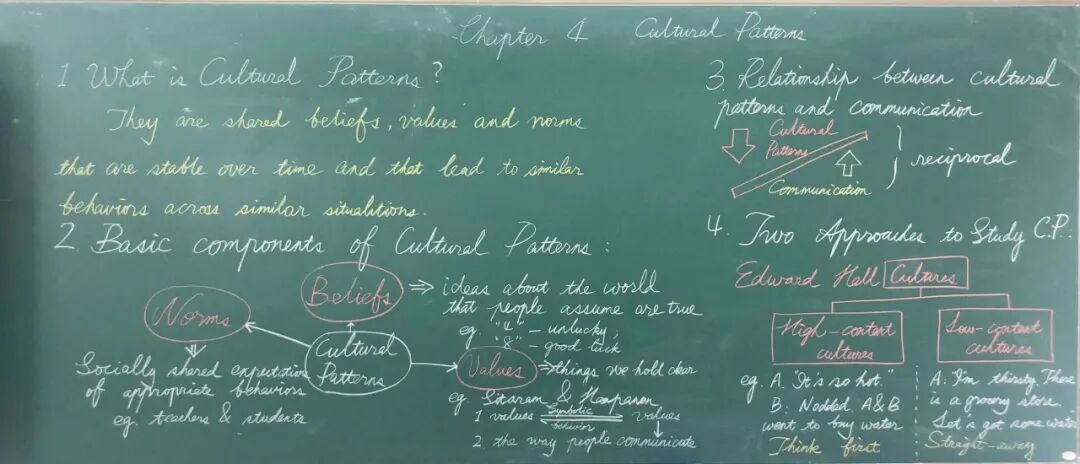 Chapter 4 Cultural Patterns
1 What is Cultural Patterns?
They are shared beliefs, values and norms
that are stable over time and that lead to similar
behaviors across similar situalitions.
2. Basic components of Cultural Patterns:
Norms
Socially shared expectation
of appropriate behaviors
eg. teachers & students
Beliefs
⇒ ideas about the world
that people assume are true
eg. "4" - unlucky;
"8" - good luck
Cultural
Patterns
Values
⇒things we hold dear
eg. Sitaram & Haapanen
1 values Symbolic behavior values
2 the way people communicate
3. Relationship between cultural
patterns and communication
Cultural
Patterns
Communication
reciprocal
4. Two Approaches to Study C.P.:
Edward Hall Cultures
High-context
cultures
eg. A. "It's so hot."
B: Nodded. A&B
went to buy water
Think first
Low-context
cultures
A: I'm thirsty. There
is a grocery store.
Let's get some water
Straight-away